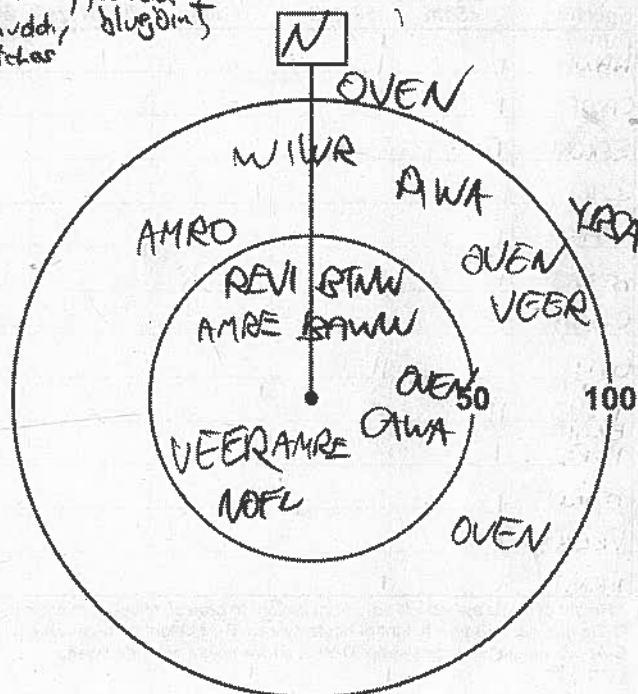 bluejoint
N
OVEN
WIWR
AWA
AMRO
OVEN
VEER
REVI BTNW
AMRE BAWW
OVEN
50
100
VEER AMRE
NOFL
OVEN